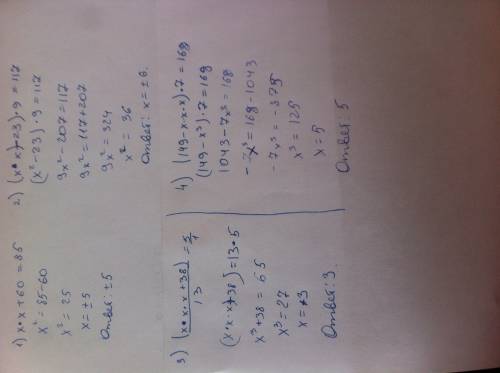 1) x•x+60=85
x²=85-60
x²=25
x=±5
Ответ: ±5
2) (x•x)-23)•9=117
(x²-23)•9=117
9x²-207=117
9x²=117+207
9x²=324
x²=36
Ответ: x=±6.
3) (x•x•x+38)/13=5/1
(x•x•x+38)=13•5
x³+38=65
x³=27
x=3
Ответ: 3.
4) (149-x•x•x)•7=168
(149-x³)•7=168
1043-7x³=168
-7x³=168-1043
-7x³=-875
x³=125
x=5
Ответ: 5